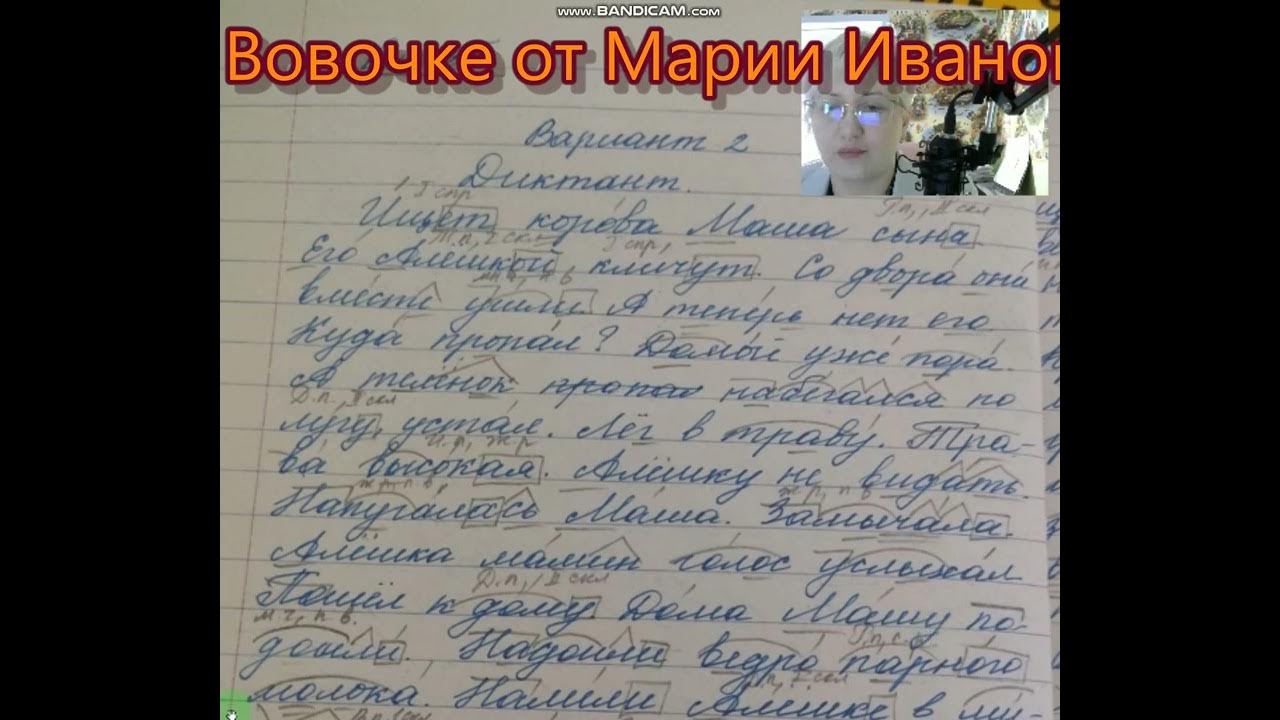 www.BANDICAM.com
Вовочке от Марии Иванов
Вариант 2
Диктант.
I спр
Р.п., II скл
Ищет корова Маша сына.
Т.п., 2 скл I спр,
Его Алёшкой кличут. Со двора они
мн.ч., п.в
вместе ушли. А теперь нет его.
Куда пропал? Домой уже пора.
А телёнок пропал набегался по
Д.п., скл
лугу, устал. Лёг в траву. Тра-
И.п., ж.р
ва высокая. Алёшку не видать.
ж.р., п.в. ж.р., п.в
Напугалась Маша. Замычала.
Алёшка мамин голос услыхал
Д.п., II скл
Пошёл к дому. Дома Машу по-
м.ч., п.в.
дошли. Надоили ведро парного
молока. Налили Алёшке в ми-